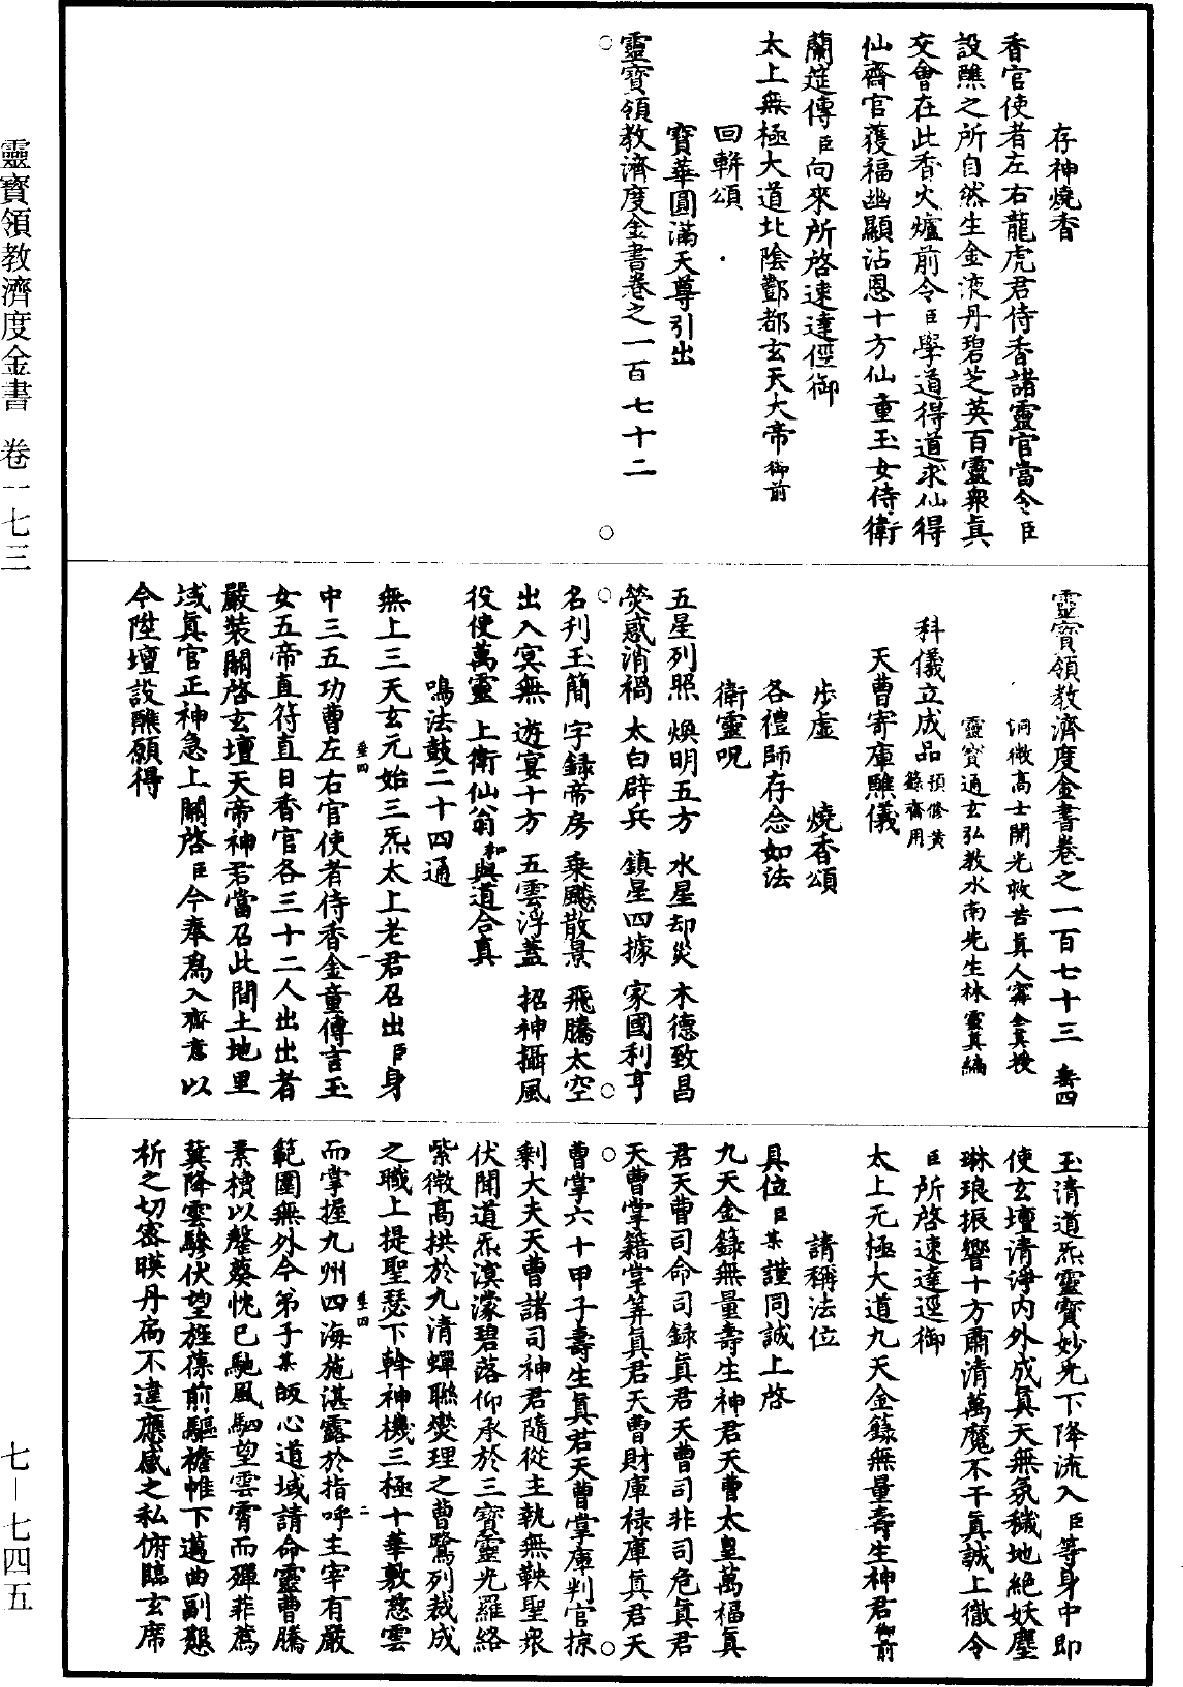 靈寶領教濟度金書　卷一七三
存神燒香
香官使者左右龍虎君侍香諸靈官當令臣
設醮之所自然生金液丹碧芝英百靈衆真
交會在此香火爐前令臣學道得道求仙得
仙齋官獲福幽顯沾恩十方仙童玉女侍衛
蘭筵傳臣向來所啓速達徑御
太上無極大道北陰酆都玄天大帝御前
回軿頌
寶華圓滿天尊引出
靈寶領教濟度金書卷之一百七十二
靈寶領教濟度金書卷之一百七十三　𡘊四
洞微高士開光救苦真人甯全真授
靈寶通玄弘教水南先生林靈真編
科儀立成品預修黃籙齋用
天曹寄庫醮儀
步虛　燒香頌
各禮師存念如法
衛靈呪
五星列照　煥明五方　水星却災　木德致昌
熒惑消禍　太白辟兵　鎮星四據　家國利亨
名刊玉簡　字錄帝房　乘飈散景　飛騰太空
出入冥無　遊宴十方　五雲浮蓋　招神攝風
役使萬靈　上衛仙翁和與道合真
鳴法鼓二十四通
無上三天玄元始三炁太上老君召出臣身
中三五功曹左右官使者侍香金童傳言玉
女五帝直符直日香官各三十二人出出者
嚴裝關啓玄壇天帝神君當召此間土地里
域真官正神急上關啓臣今奉爲入齋意以
今陞壇設醮願得
玉清道炁靈寶妙光下降流入臣等身中即
使玄壇清淨內外成真天無氛穢地絕妖塵
琳琅振響十方肅清萬魔不干真誠上徹令
臣所啓速達逕御
太上无極大道九天金籙無量壽生神君御前
請稱法位
具位臣某謹同誠上啓
九天金籙無量壽生神君天曹太皇萬福真
君天曹司命司錄真君天曹司非司危真君
天曹掌籍掌筭真君天曹財庫祿庫真君天
曹掌六十甲子壽生真君天曹掌庫判官掠
剩大夫天曹諸司神君隨從主執無鞅聖衆
伏聞道炁溟濛碧落仰承於三寶靈光羅絡
紫微高拱於九清蟬聯爕理之曹鷺列裁成
之職上提聖瑟下斡神機三極十華敷慈雲
而掌握九州四海施湛露於指呼主宰有嚴
範圍無外今弟子某皈心道域請命靈曹騰
素櫝以罄葵忱已馳風馹望雲霄而殫菲薦
冀降雲驂伏望旌葆前驅襜帷下邁曲副懇
祈之切密暎丹扃不違應感之私俯臨玄席
七—七四五